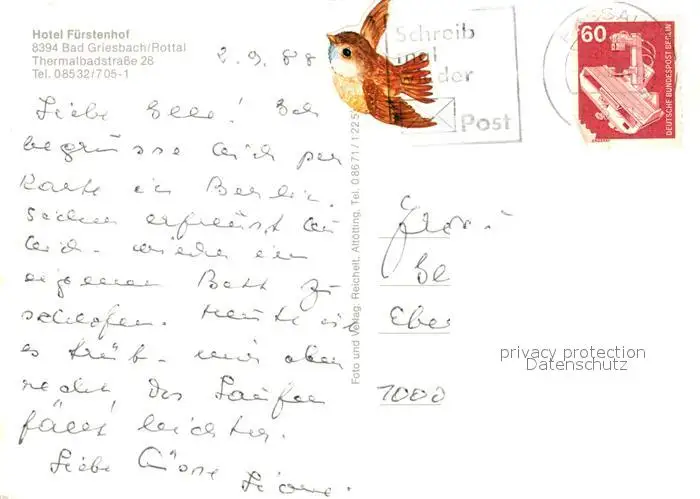 Hotel Fürstenhof
8394 Bad Griesbach/Rottal
Thermalbadstraße 28
Tel. 08532/705-1
2.9.88
Schreib
mal
der
Post
60
DEUTSCHE BUNDESPOST BERLIN
Liebe Ich
begrüsse dich per
Karte in Berlin.
Sicher erfreust du
dich wieder im
eigenen Bett zu
schlafen. Heute ist
es trüb - mir aber
recht, das Laufen
fällt leichter.
Liebe Grüsse
Foto und Verlag: Reichelt, Altötting, Tel. 08671/1225
1000
privacy protection
Datenschutz